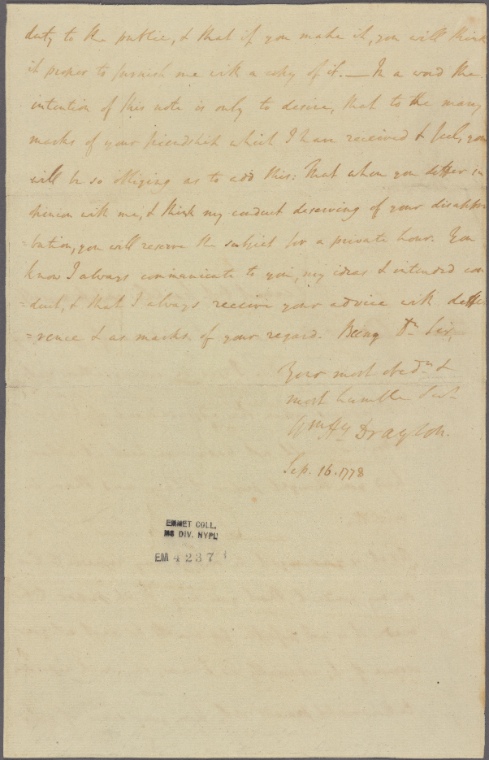 duty to the public, & that if you make it, you will think
it proper to furnish me with a copy of it. — In a word the
intention of this note is only to desire, that to the many
marks of your friendship which I have received & feel, you
will be so obliging as to add this: That when you differ in
opinion with me, & think my conduct deserving of your disappro
bation, you will reserve the subject for a private hour. You
know I always communicate to you, my ideas & intended con
duct, & that I always receive your advice with defe
=rence & as marks of your regard. Being Dr. Sir,
Your most obedt. &
most humble Sert.
Wm. Hy. Drayton.
Sep. 16. 1778
EMMET COLL.
MS DIV. NYPL
EM 4237